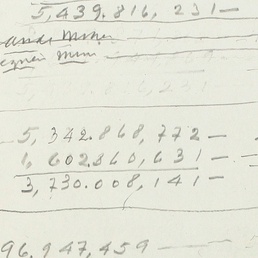 5,439.816,231—
5,342.868,772—
1,602.860,631—
3,730.008,141—
96.947,459—